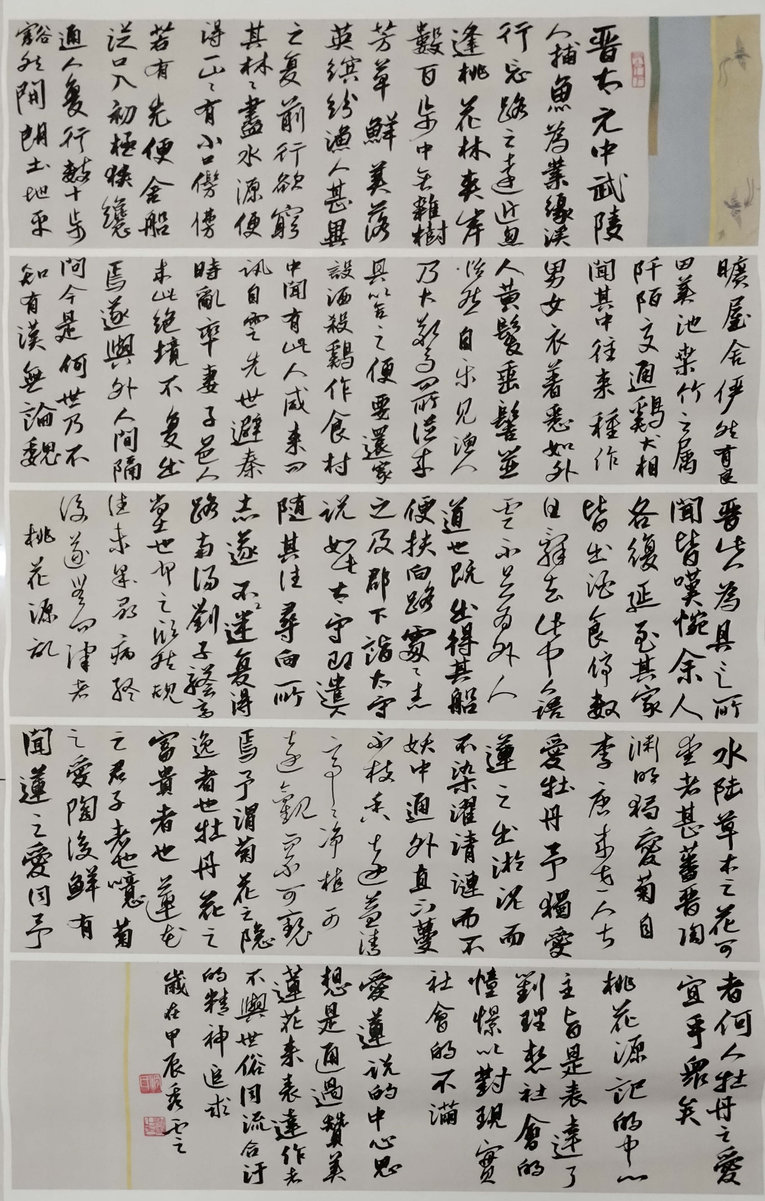 晋太元中武陵
人捕魚為業緣溪
行忘路之遠近忽
逢桃花林夾岸
數百步中無雜樹
芳草鮮美落
英繽紛漁人甚異
之复前行欲窮
其林々盡水源便
得一山々有小口髣髴
若有光便舍船
從口入初極狹纔
通人复行數十步
豁然開朗土地平
曠屋舍儼然有良
田美池桑竹之属
阡陌交通鷄犬相
聞其中往来種作
男女衣著悉如外
人黄髮垂髫並
怡然自乐見渔人
乃大驚問所從来
具答之便要還家
設酒殺鷄作食村
中聞有此人咸来问
訊自雲先世避秦
時亂率妻子邑人
来此绝境不复出
焉遂與外人間隔
問今是何世乃不
知有漢無論魏
晋 為具言所
聞皆嘆惋余人
各復延至其家
皆出酒食停数
日辞去此中人语
雲不足為外人
道也既出得其船
便扶向路處々志
之及郡下詣太守
説如此太守即遣人
随其往尋向所
志遂不迷复得
路南阳劉子骥高
尚士也闻之欣然规
往未果尋病终
後遂無问津者
桃花源記
水陆草木之花可
爱者甚蕃晋陶
渊明獨愛菊自
李唐来世人甚
愛牡丹予獨愛
蓮之出淤泥而
不染濯清漣而不
妖中通外直不蔓
不枝香远益清
亭々净植可
远觀而不可亵玩
焉予谓菊花之隐
逸者也牡丹花之
富貴者也蓮花
之君子者也噫菊
之愛陶後鮮有
聞蓮之愛同予
者何人牡丹之愛
宜乎眾矣
桃花源記的中心
主旨是表達了
對理想社會的
憧憬以對現實
社會的不滿
愛蓮説的中心思
想是通過贊美
蓮花来表達作者
不與世俗同流合污
的精神追求
歲在甲辰 云之